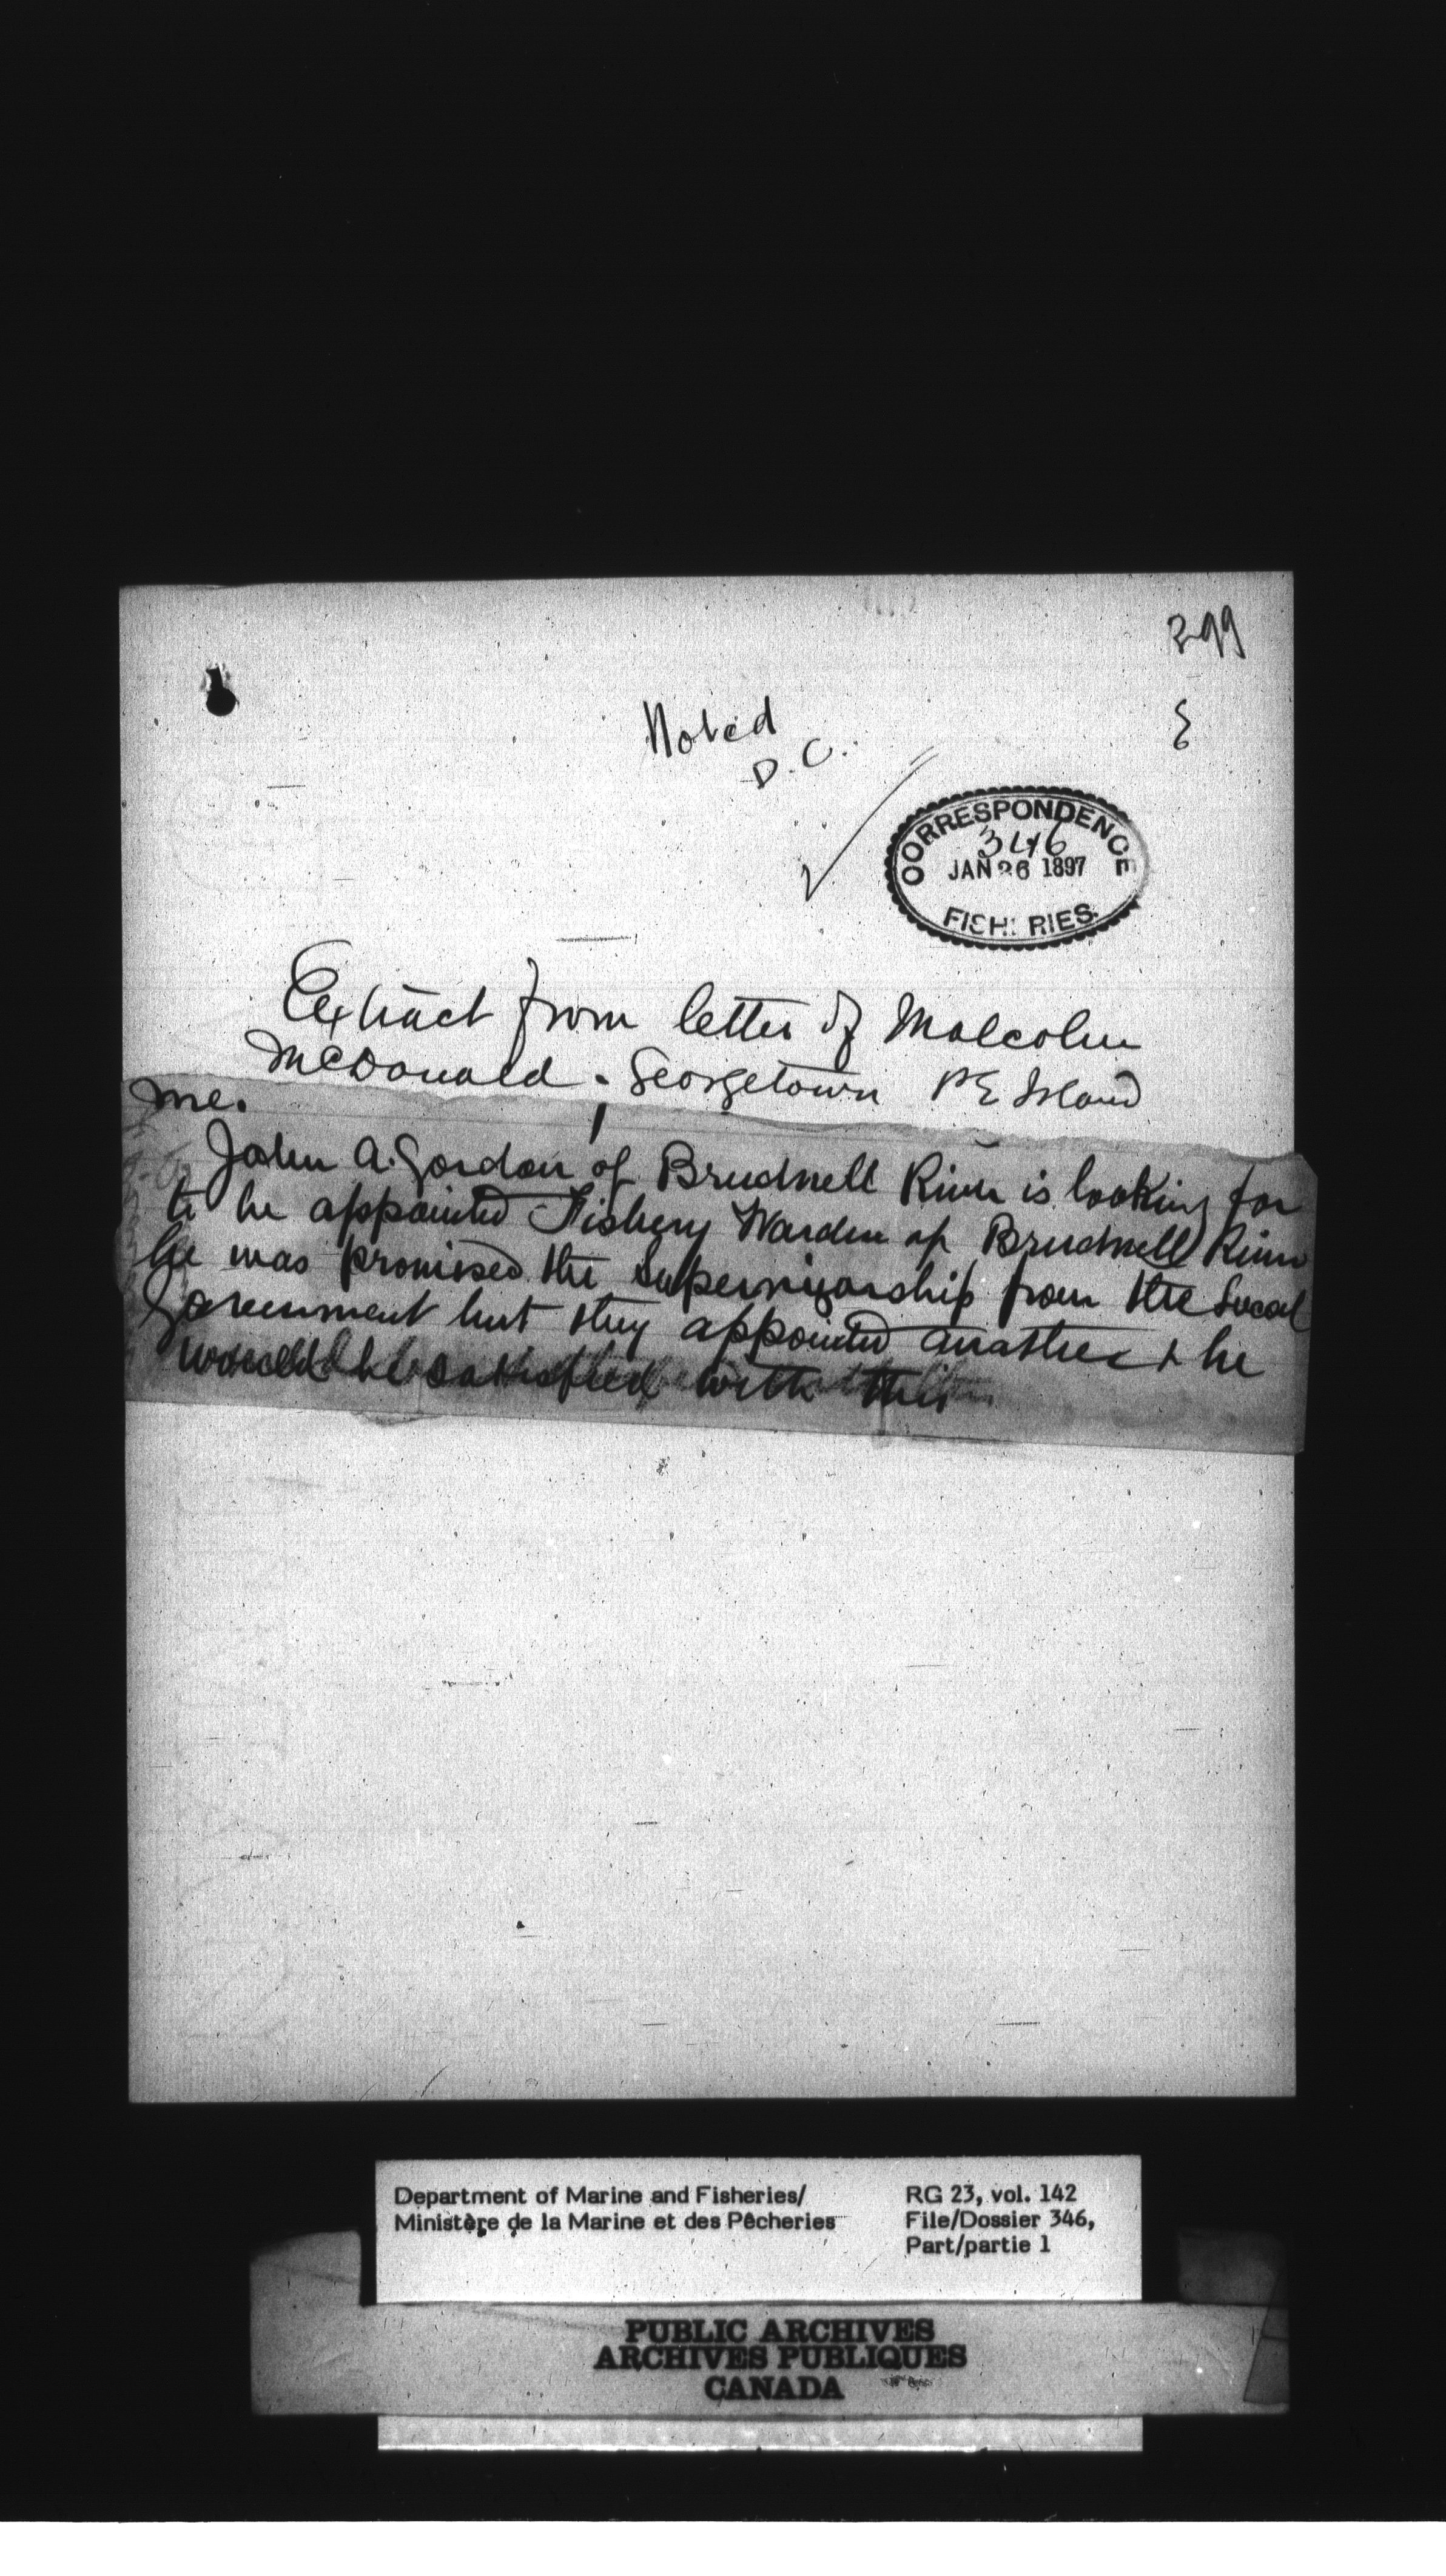 299
Noted
D.C.
CORRESPONDENCE
346
JAN 26 1897
FISHERIES.
Extract from letter of Malcolm
McDonald. Georgetown P E Island
me.
John A. Gordon of Brudnell River is looking for
to be appointed Fishery Warden of Brudnell River
he was promised the Supervisorship from the Local
Government but they appointed another & he
would be satisfied with this
Department of Marine and Fisheries/
Ministère de la Marine et des Pêcheries
RG 23, vol. 142
File/Dossier 346,
Part/partie 1
PUBLIC ARCHIVES
ARCHIVES PUBLIQUES
CANADA